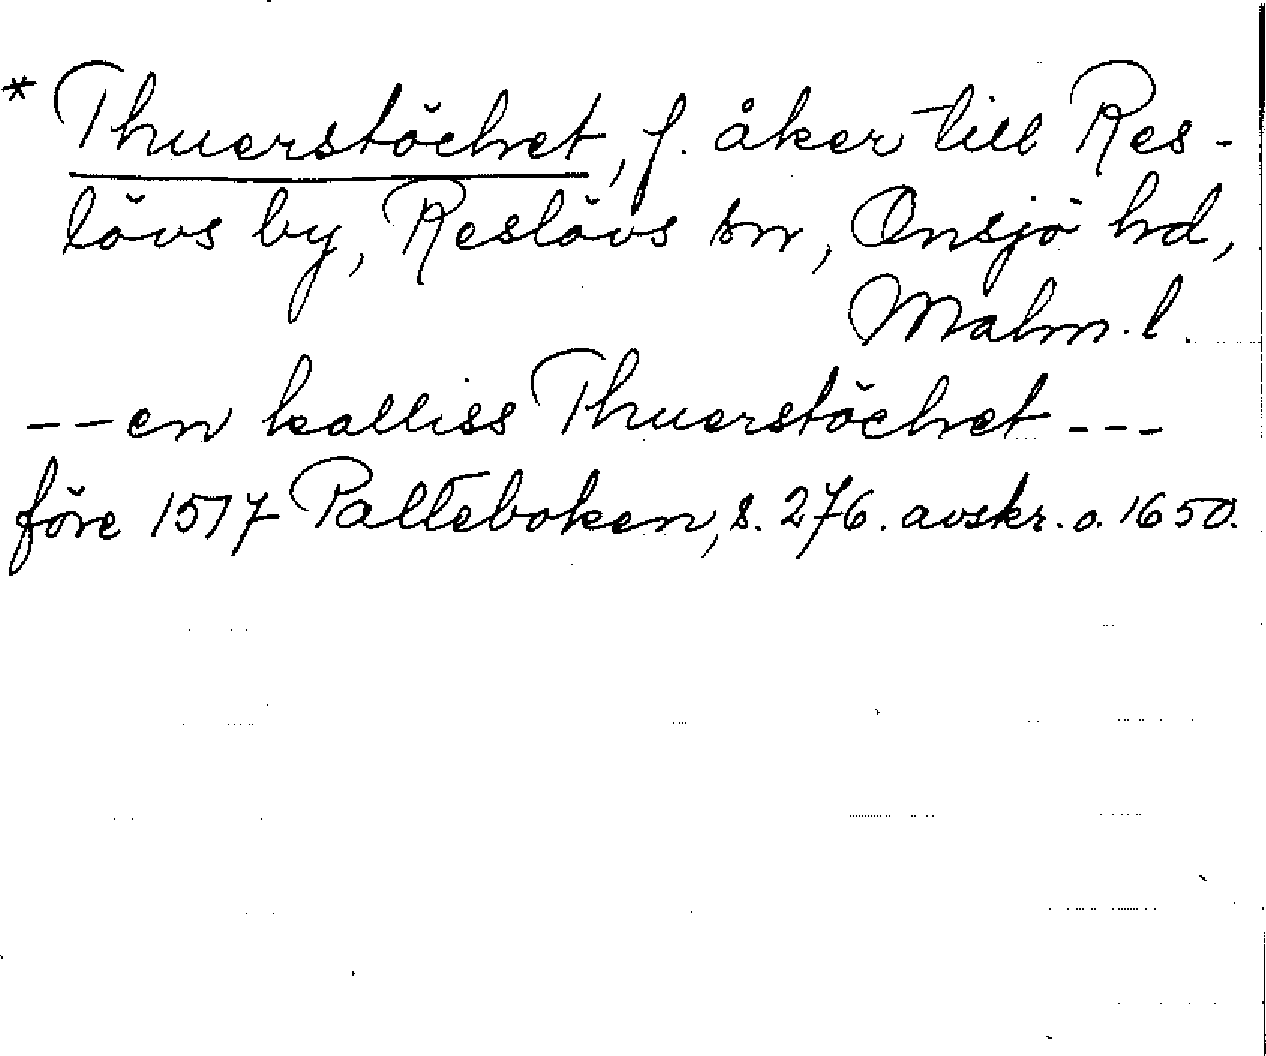 * Thuerstöchet, f. åker till Res-
lövs by, Reslövs sn, Onsjö hd,
Malm. l.
--en kalliss Thuerstöchet ---
före 1517 Palteboken, s. 276. avskr. o. 1650.